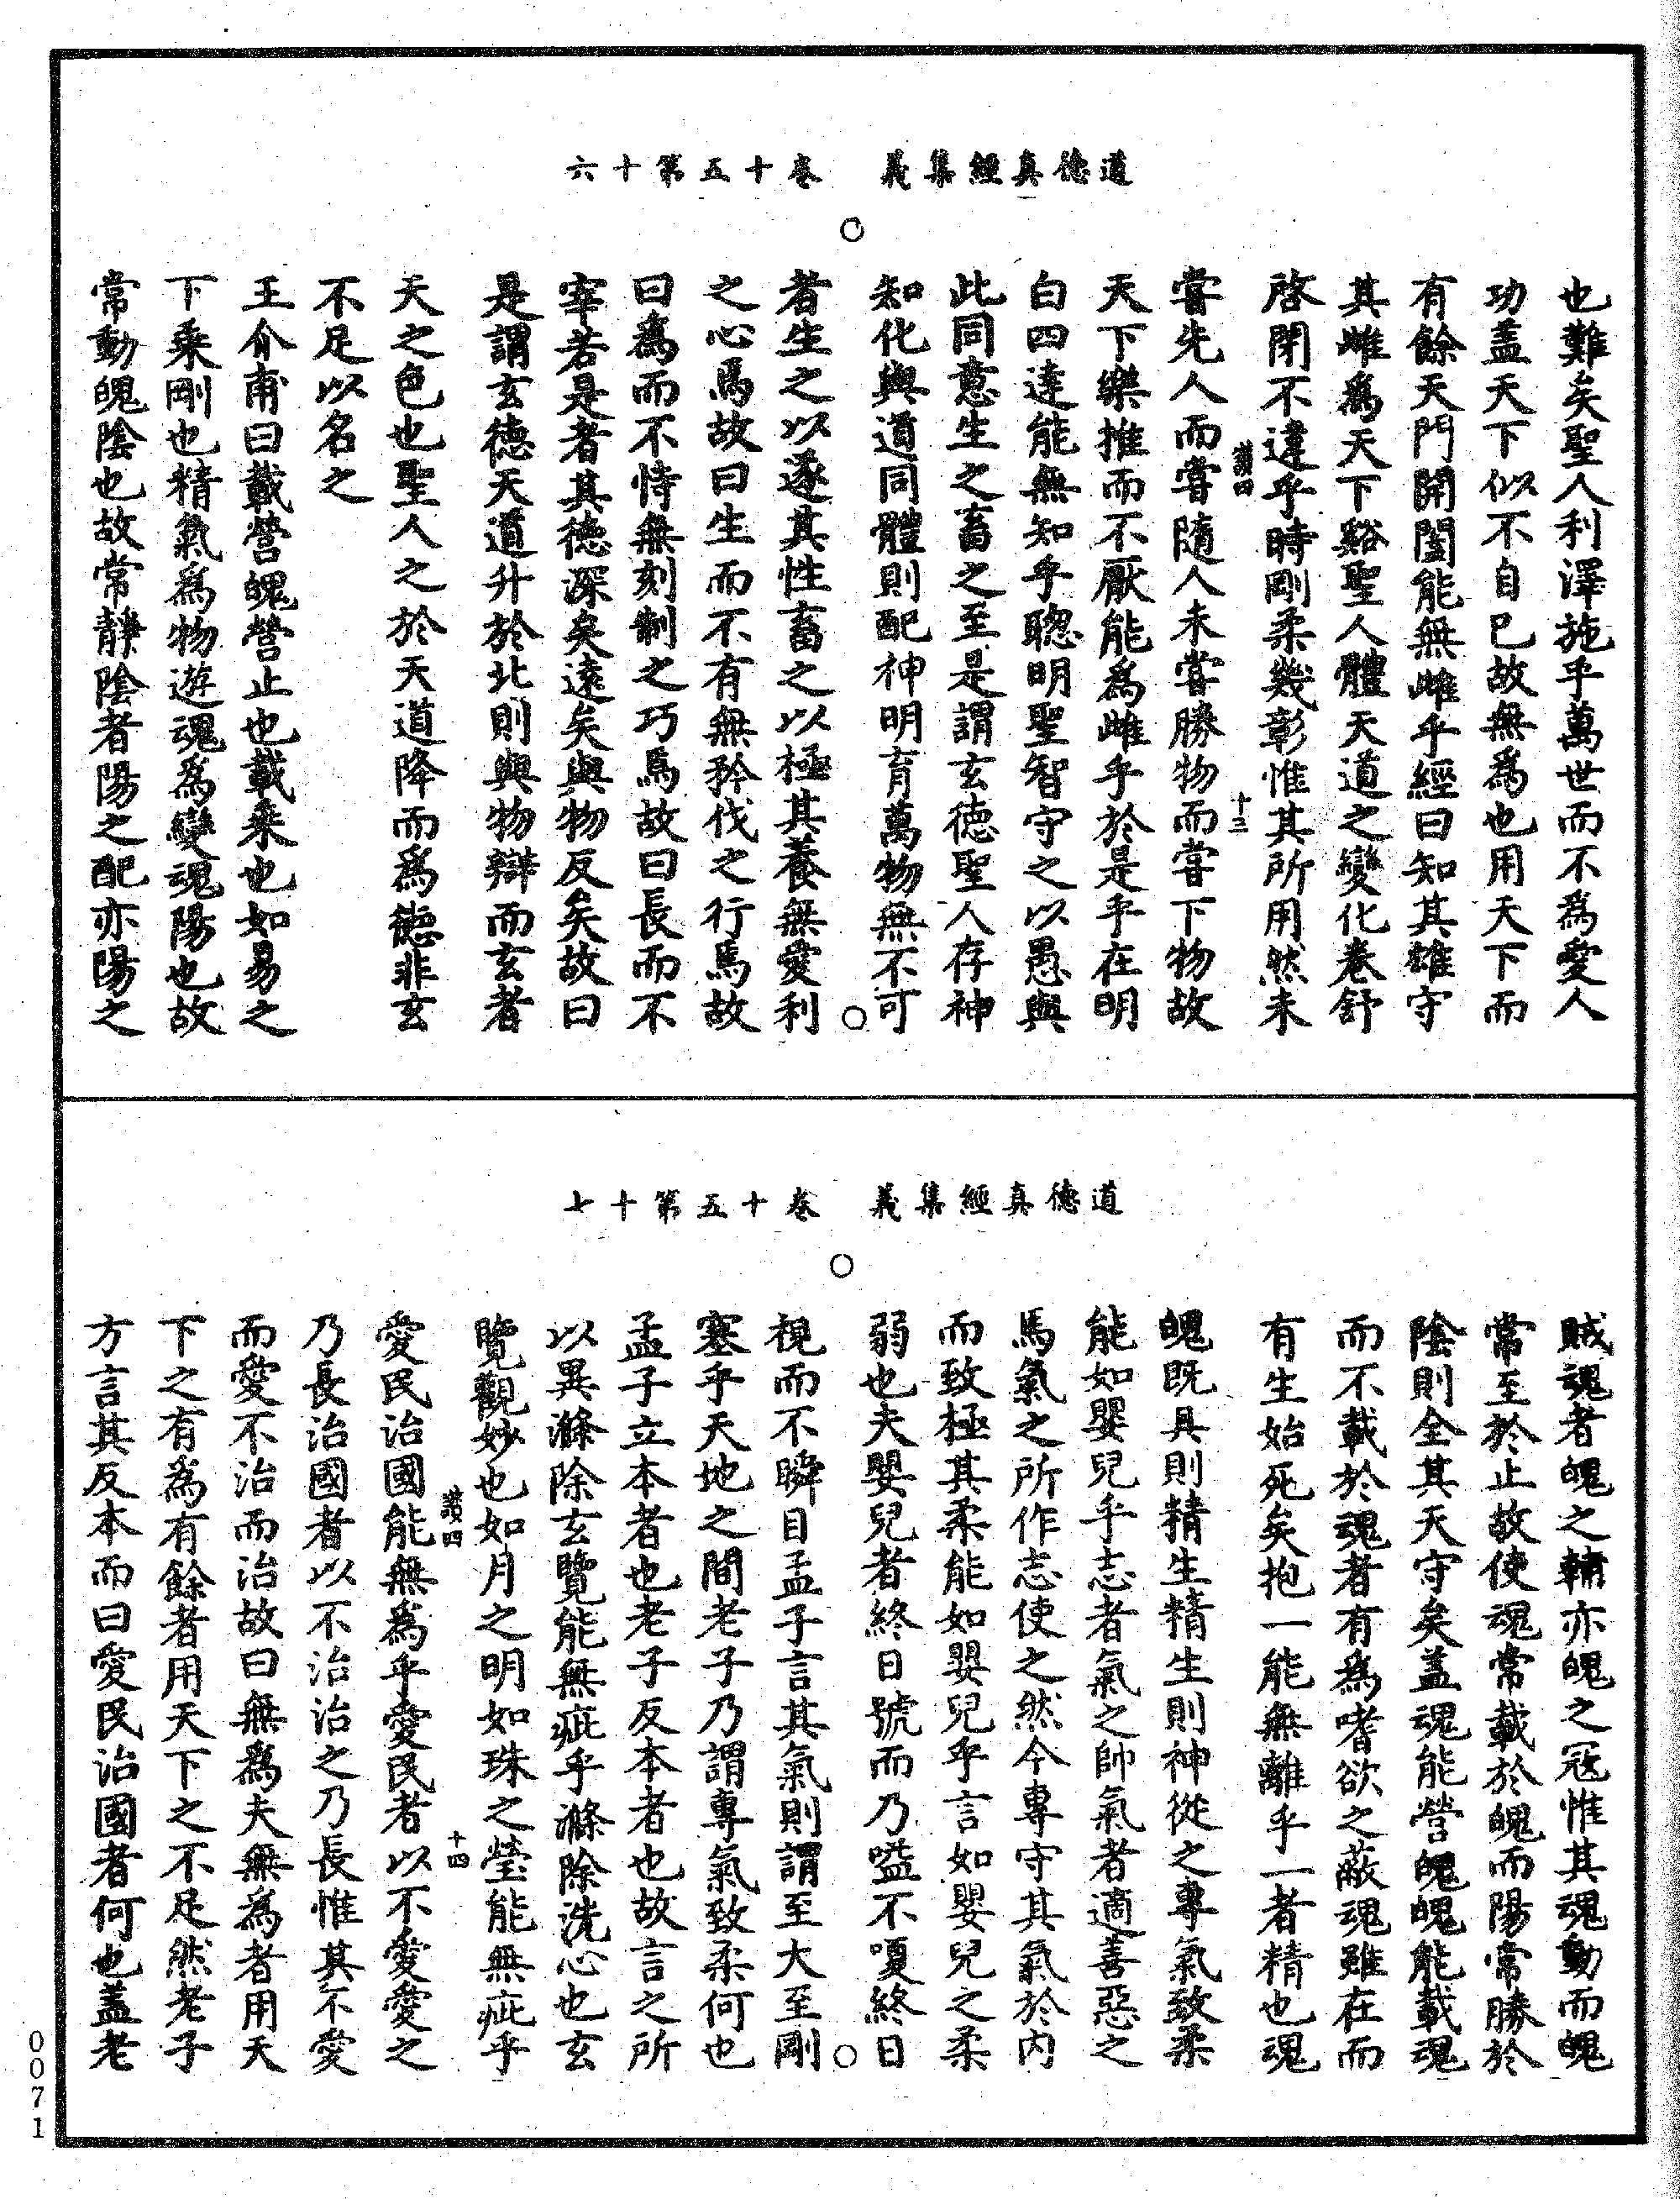 道德真經集義　卷十五第十六
也難矣聖人利澤施乎萬世而不為愛人
功盖天下似不自己故無為也用天下而
有餘天門開闔能無雌乎經曰知其雄守
其雌為天下谿聖人體天道之變化卷舒
啓閉不違乎時剛柔幾彰惟其所用然未
讚四　十三
嘗先人而嘗隨人未嘗勝物而嘗下物故
天下樂推而不厭能為雌乎於是乎在明
白四達能無知乎聰明聖智守之以愚與
此同意生之畜之至是謂玄德聖人存神
知化與道同體則配神明育萬物無不可
者生之以遂其性畜之以極其養無愛利
之心焉故曰生而不有無矜伐之行焉故
曰為而不恃無刻制之巧焉故曰長而不
宰若是者其德深矣遠矣與物反矣故曰
是謂玄德天道升於北則與物辯而玄者
天之色也聖人之於天道降而為德非玄
不足以名之
王介甫曰載營魄營止也載乘也如易之
下乘剛也精氣為物遊魂為變魂陽也故
常動魄陰也故常靜陰者陽之配亦陽之
道德真經集義　卷十五第十七
賊魂者魄之輔亦魄之冦惟其魂動而魄
常至於止故使魂常載於魄而陽常勝於
陰則全其天守矣盖魂能營魄魄能載魂
而不載於魂者有為嗜欲之蔽魂雖在而
有生始死矣抱一能無離乎一者精也魂
魄既具則精生精生則神從之專氣致柔
能如嬰兒乎志者氣之帥氣者適善惡之
馬氣之所作志使之然今專守其氣於内
而致極其柔能如嬰兒乎言如嬰兒之柔
弱也夫嬰兒者終日號而乃嗌不嗄終日
視而不瞬目孟子言其氣則謂至大至剛
塞乎天地之間老子乃謂專氣致柔何也
孟子立本者也老子反本者也故言之所
以異滌除玄覽能無疵乎滌除洗心也玄
覽觀妙也如月之明如珠之瑩能無疵乎
讚四　十四
愛民治國能無為乎愛民者以不愛愛之
乃長治國者以不治治之乃長惟其不愛
而愛不治而治故曰無為夫無為者用天
下之有為有餘者用天下之不足然老子
方言其反本而曰愛民治國者何也盖老
0071